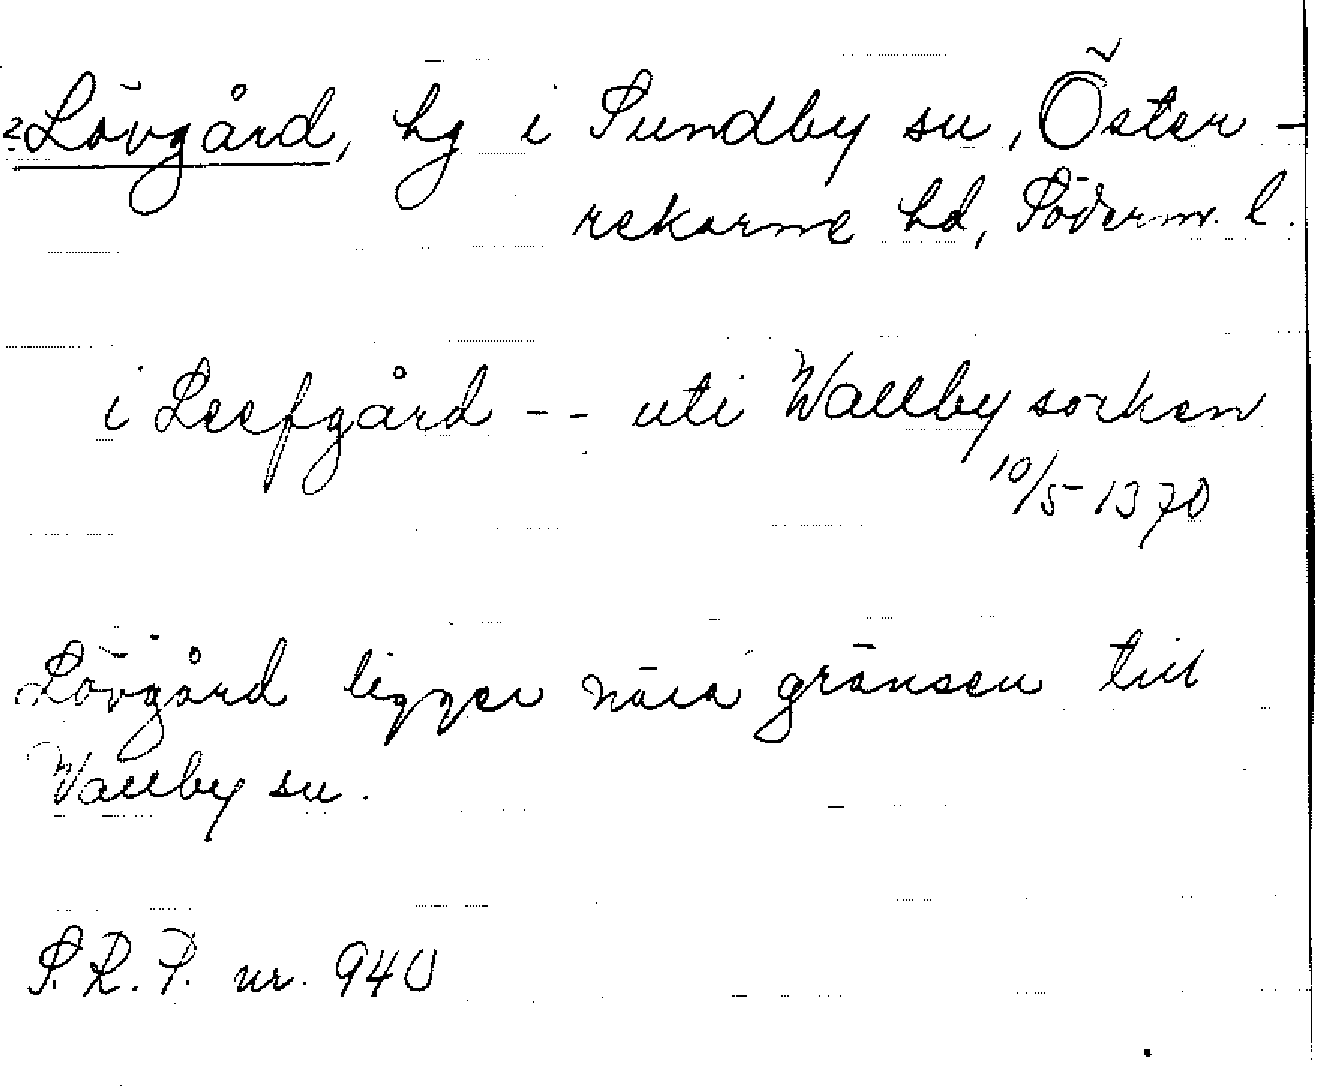 ?Lövgård, hg i Sundby sn, Öster-
rekarne hd, Söderm. l.
i Leefgård -- uti Wallby sorken
10/5 1370
Lövgård ligger nära gränsen till
Wallby sn.
S.R.P. nr. 940